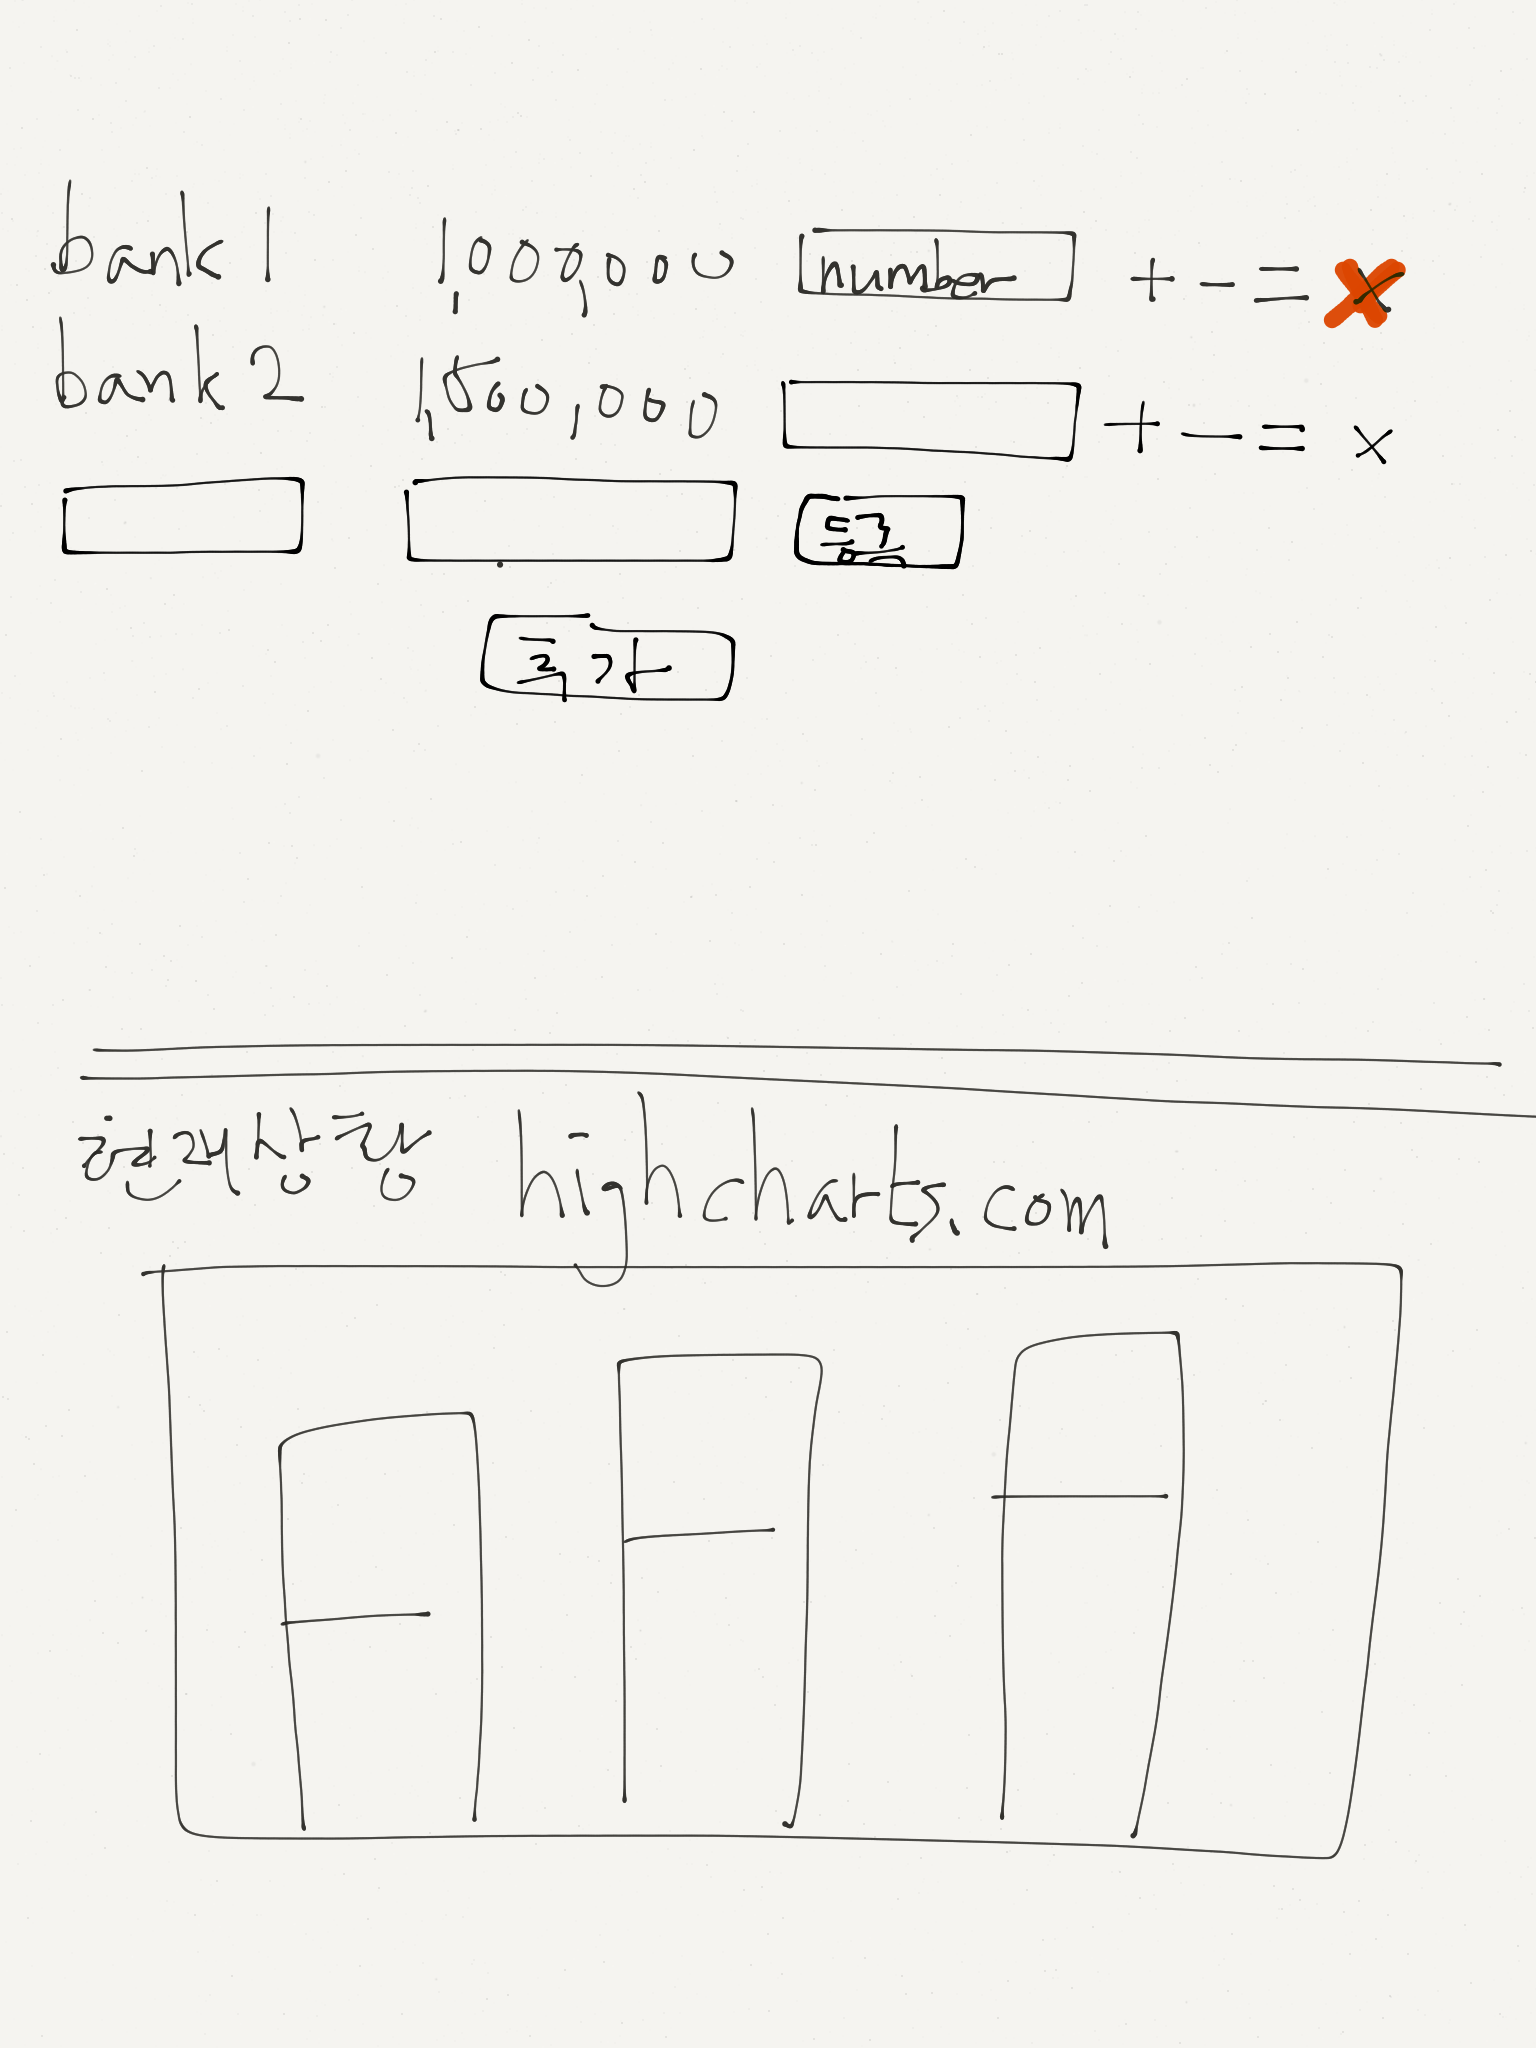 bank 1 1,000,000 number + - = x
bank 2 1,500,000 + - = x
등록
추가
현재상황 highcharts.com